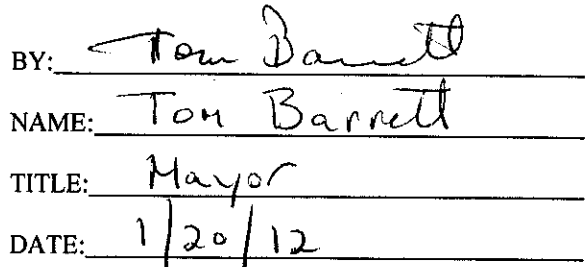 BY: Tom Barrett
NAME: Tom Barrett
TITLE: Mayor
DATE: 1/20/12